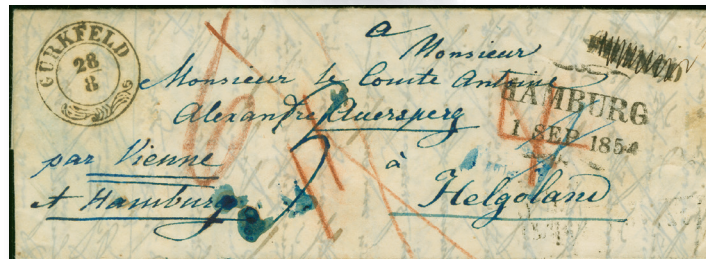 GURKFELD
28
8
a
Monsieur
Monsieur le Comte Antoine
Alexandre Auersperg
HAMBURG
1 SEP. 185
par Vienne
à
et Hamburg
Helgoland